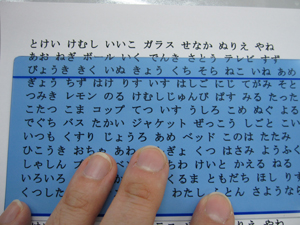 とけい けむし いいこ ガラス せなか ぬりえ やね
あお ねぎ ボール いく でんき さとう テレビ すず
びょうき きく いぬ きょう くち そら ねこ いね あめ
ぎょう ちず はけ りす いす はしご にじ てがみ そと
つみき レモン のる けむし じゅんび ぱす みる たった
こたつ こま コップ てつ いす うしろ こめ ぬぐ よる
でぐち バス たかい ジャケット ぜっこう しごと こい
いつも くすり じょうろ あめ ベッド このは たたみ
ひこうき おちゃ あわ ぎょ くつ はさみ ようふく
しゃしん ちわ けいと かえる ねる
いろいろ くるま ともだち ほし りす
くつした わたし ふとん さようなら